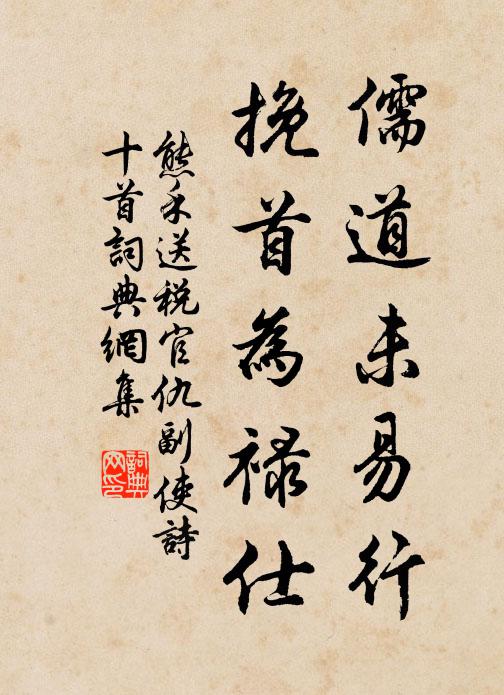 儒道未易行
挽首為祿仕
熊禾送税官仇副使詩
十首詞典網集
詞典網印